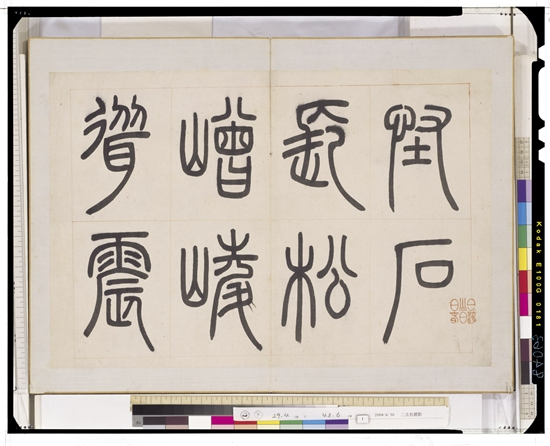 怪石
長松
嶒崚
聳震
Kodak E100G 0181